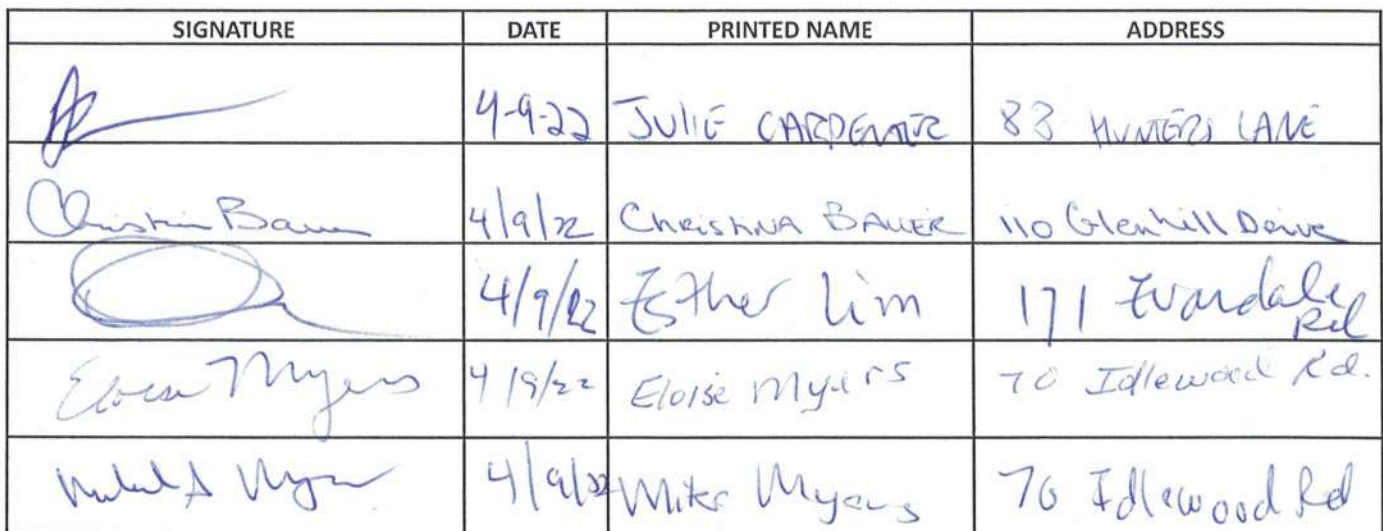 SIGNATURE DATE PRINTED NAME ADDRESS
4-9-22 JULIE CARPENTER 83 HUNTERS LANE
Christin Bauer 4/9/22 CHRISTINA BAUER 110 Glenhill Drive
4/9/22 Esther Lim 171 Evandale Rd
Eloise Myers 4/9/22 Eloise Myers 70 Idlewood Rd.
Michael A Myers 4/9/22 Mike Myers 70 Idlewood Rd